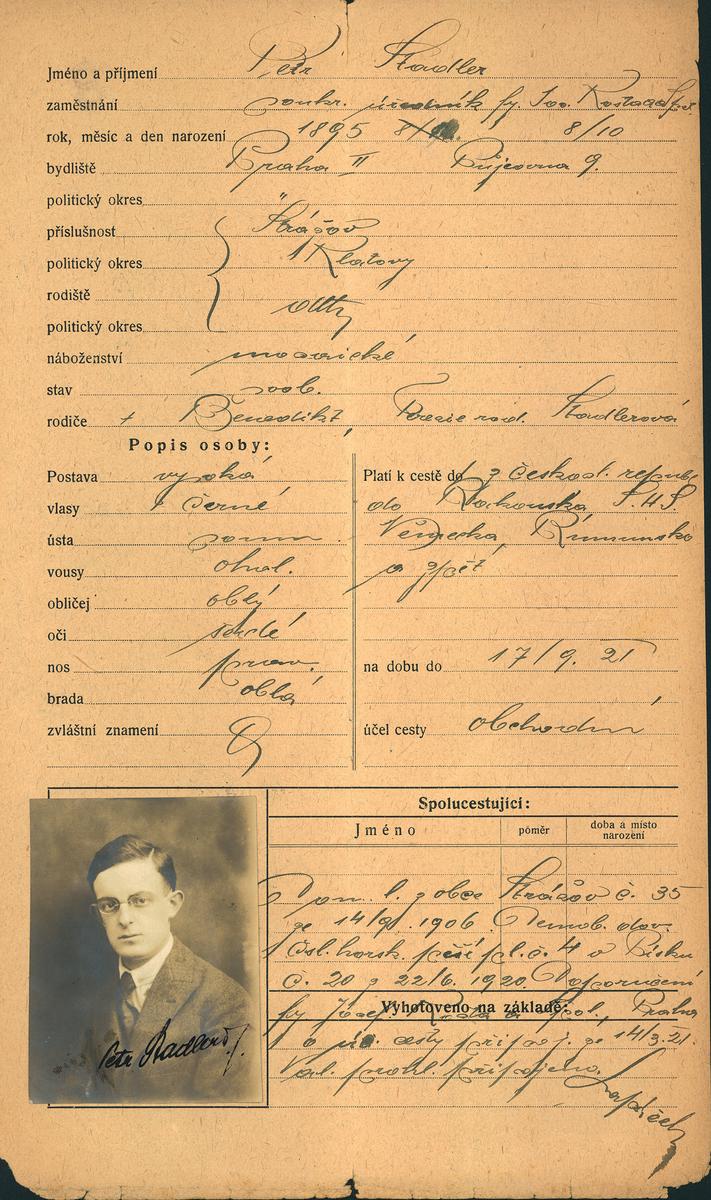 Jméno a příjmení Petr Stadler
zaměstnání soukr. úředník fy. Jos.
rok, měsíc a den narození 1895 8/10
bydliště Praha II Půjčovna 9.
politický okres "
příslušnost Strážov
politický okres Klatovy
rodiště
politický okres
náboženství mosaické
stav svob.
rodiče + Benedikt, roz. Stadlerová
Popis osoby:
Postava vysoká
vlasy černé
ústa
vousy ohol.
obličej oblý
oči šedé
nos prav.
brada oblá
zvláštní znamení
Platí k cestě do z českosl. republ.
do Rakouska, S.H.S.
Německa, Rumunska
a zpět
na dobu do 17/9. 21
účel cesty obchodní
Spolucestující:
Jméno poměr doba a místo narození
Dom. l. z obce Strážov č. 35
ze 14/9. 1906. Demob. dov.
čsl. horsk. pěší pl. č. 4 v Písku
č. 20 z 22/6. 1920. Doporučení
Vyhotoveno na základě:
fy Josef a spol., Praha
o cesty připoj. ze 14/3. 21.
prohl. připojeno.
Petr Stadler